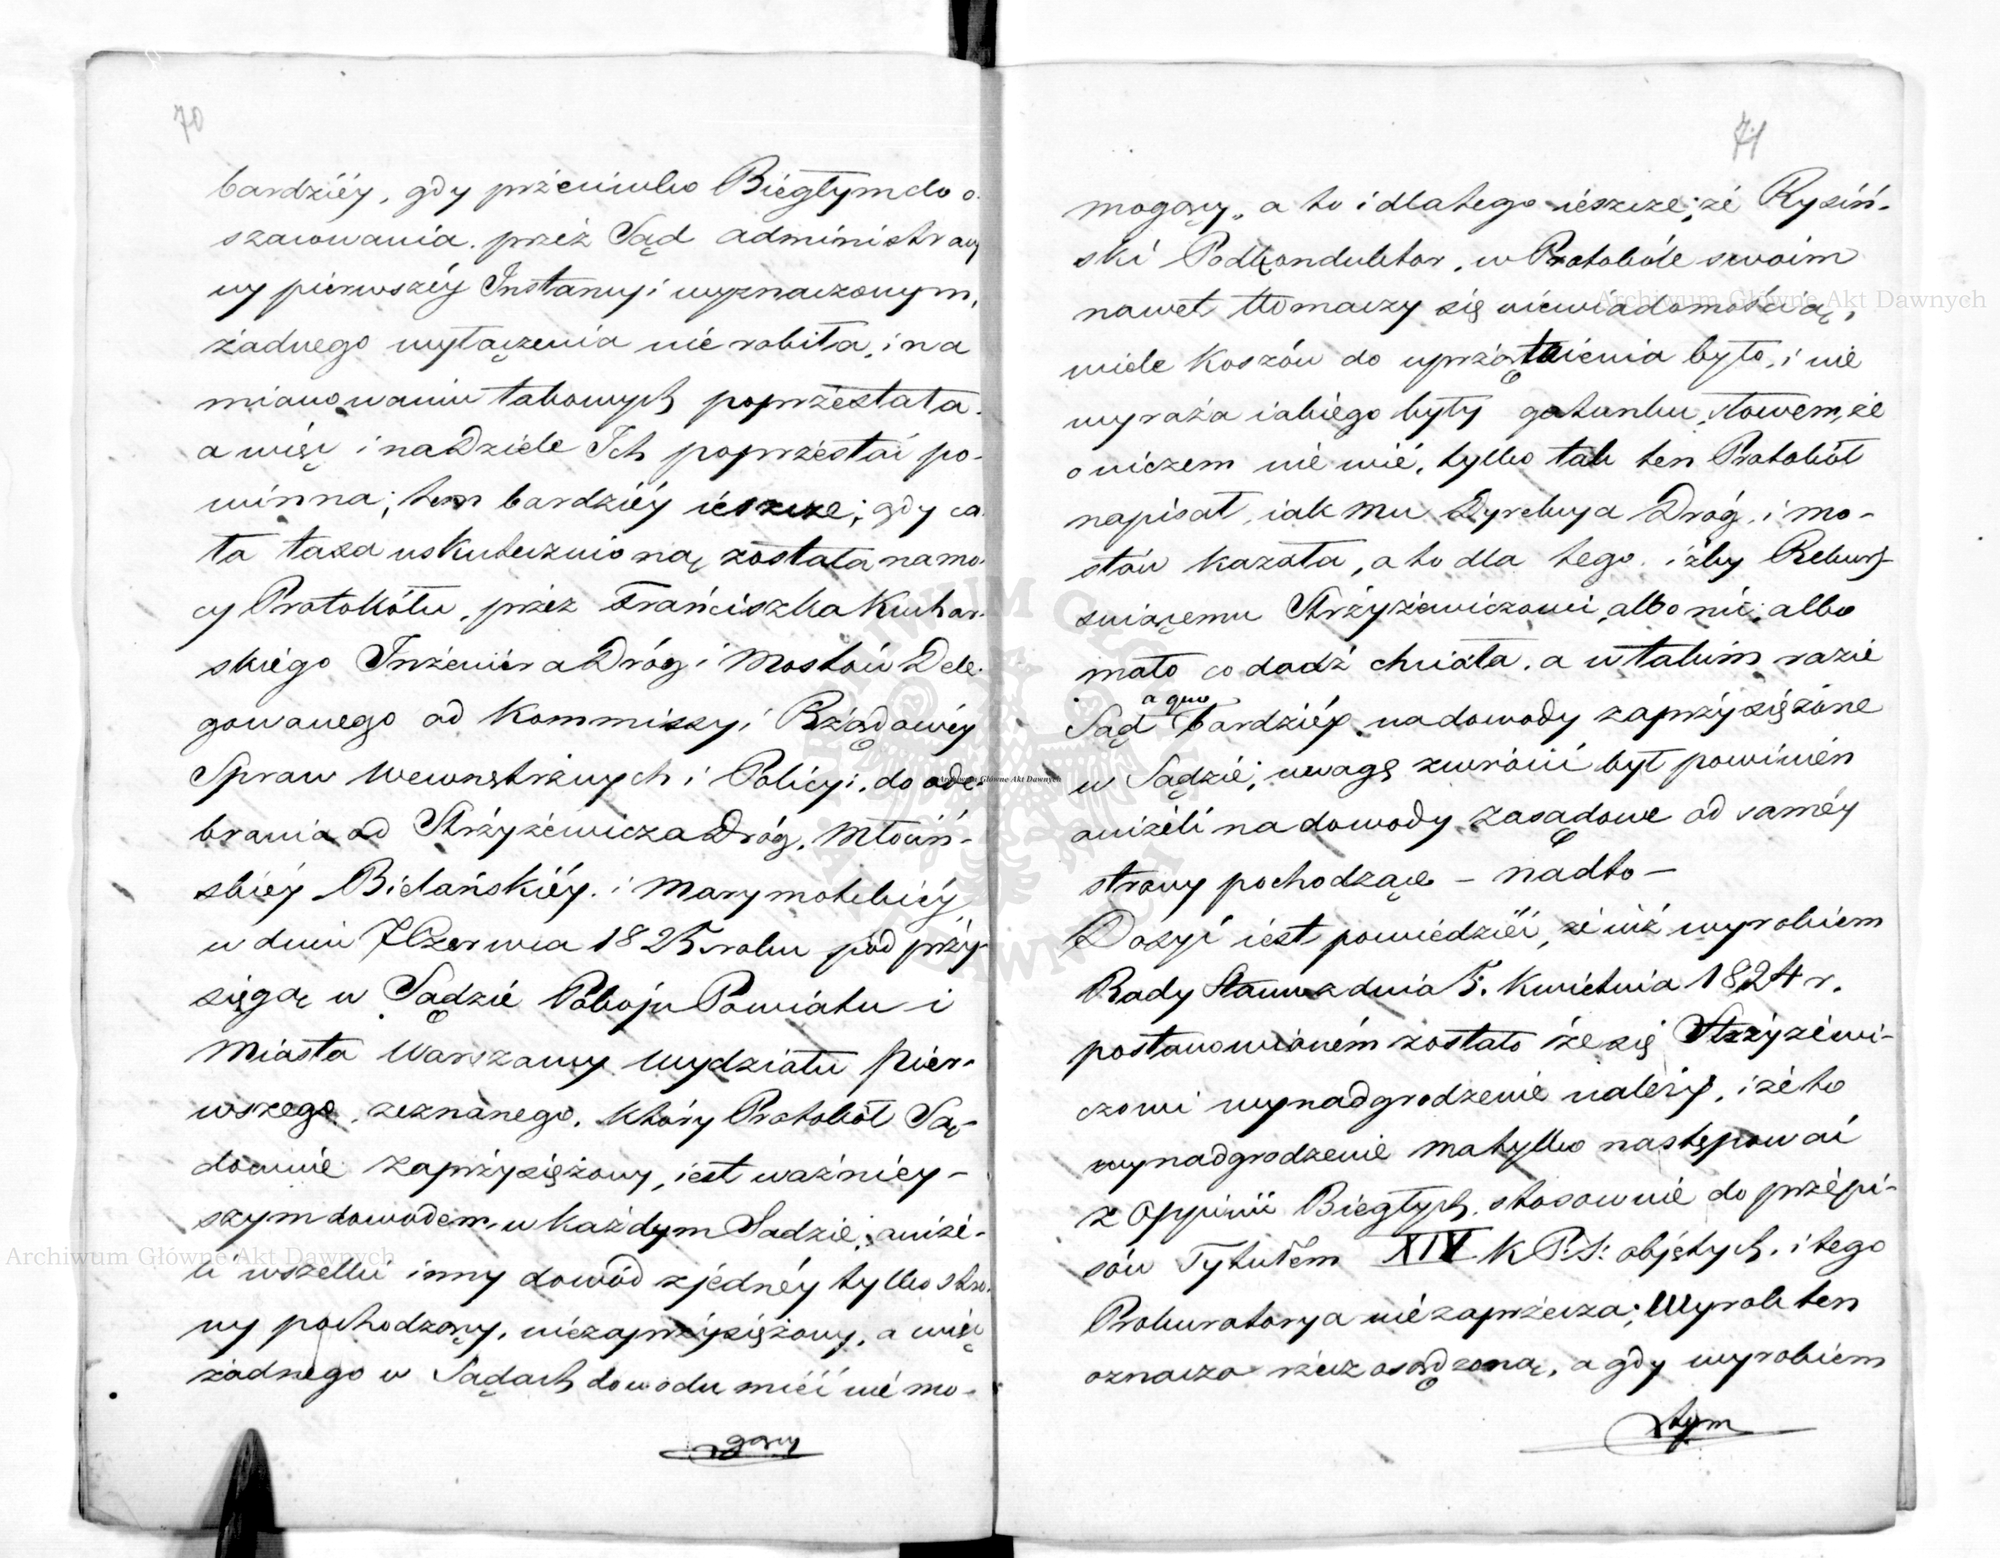 70
bardziéy, gdy przeciwko Biegłym do o-
szacowania przez Sąd administracy
ny pierwszéy Instancyi wyznaczonym,
żadnego wyłączenia nie robiła, i na
mianowaniu takowych poprzestała.
a więc i na Dziele Ich poprzestać po-
winna; tem bardziéy ieszcze; gdy ca
ła taxa uskutecznioną została na mo-
cy Protokółu, przez Franciszka Kuchar-
skiego Inżeniera Dróg i Mostów Dele-
gowanego od Kommissyi Rządowéy
Spraw Wewnętrznych i Policyi, do ode-
brania od Strzyżewicza Dróg, Młociń-
skiéy Bielańskiéy i Marymontckiéy
w dniu 7 Czerwca 1825 roku pod przy
sięgą w Sądzie Pokoju Powiatu i
Miasta Warszawy Wydziału Pier-
wszego, zeznanego, który Protokół Są-
downie zaprzysiężony, iest ważniey-
szym dowodem w każdym Sądzie, aniże-
li wszelki inny dowód z jednéy tylko stro-
ny pochodzący, niezaprzysiężony, a więc
żadnego w Sądach dowodu mieć nie mo-
gący
71
mogący, a to i dlatego ieszcze; że Rysiń-
ski Podkonduktor, w Protokóle swoim
nawet tłomaczy się niewiadomością,
wiele koszów do uprzątnienia było, i nie
wyraża iakiego były gatunku, słowem, że
o niczem nie wié, tylko tak ten Protokół
napisał, iak mu Dyrekcya Dróg i mo-
stów kazała, a to dla tego, iżby Rekurs-
suiącemu Strzyżewiczowi, albo nic, albo
mało co dadź chciała, a w takim razie
a quo
Sąd bardziéy na dowody zaprzysiężone
w Sądzie, uwagę zwrócić był powinién
aniżeli na dowody zasądowe od saméy
strony pochodzące – nadto –
Dosyć iest powiedziéć, że iuż wyrokiem
Rady Stanu z dnia 5. Kwietnia 1824 r.
postanowioném zostało że się Strzyżewi-
czowi wynadgrodzenie należy, i że to
wynadgrodzenie ma tylko następować
z Oppinii Biegłych, stosownie do przepi-
sów Tytułem XIV K P: S: objętych, i tego
Prokuratorya niezaprzecza; Wyrok ten
oznacza rzecz osądzoną, a gdy wyrokiem
tym
Archiwum Główne Akt Dawnych
Archiwum Główne Akt Dawnych
Archiwum Główne Akt Dawnych